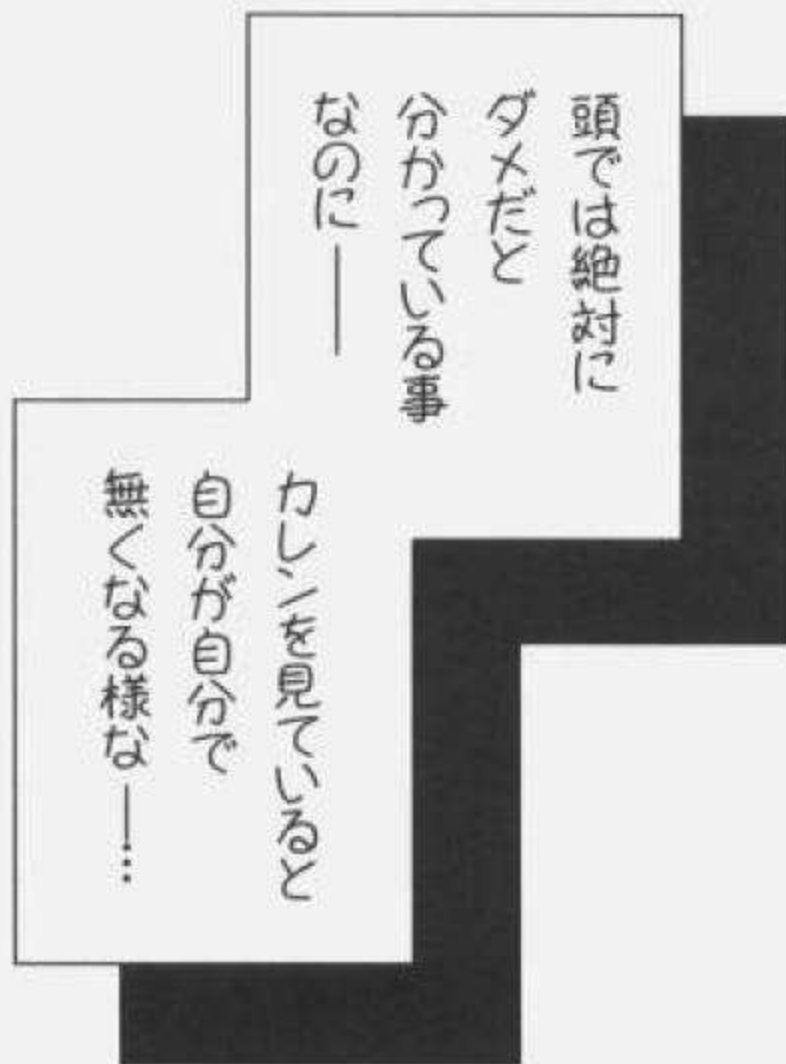 頭では絶対に
ダメだと
分かっている事
なのに――
カレンを見ていると
自分が自分で
無くなる様な―…